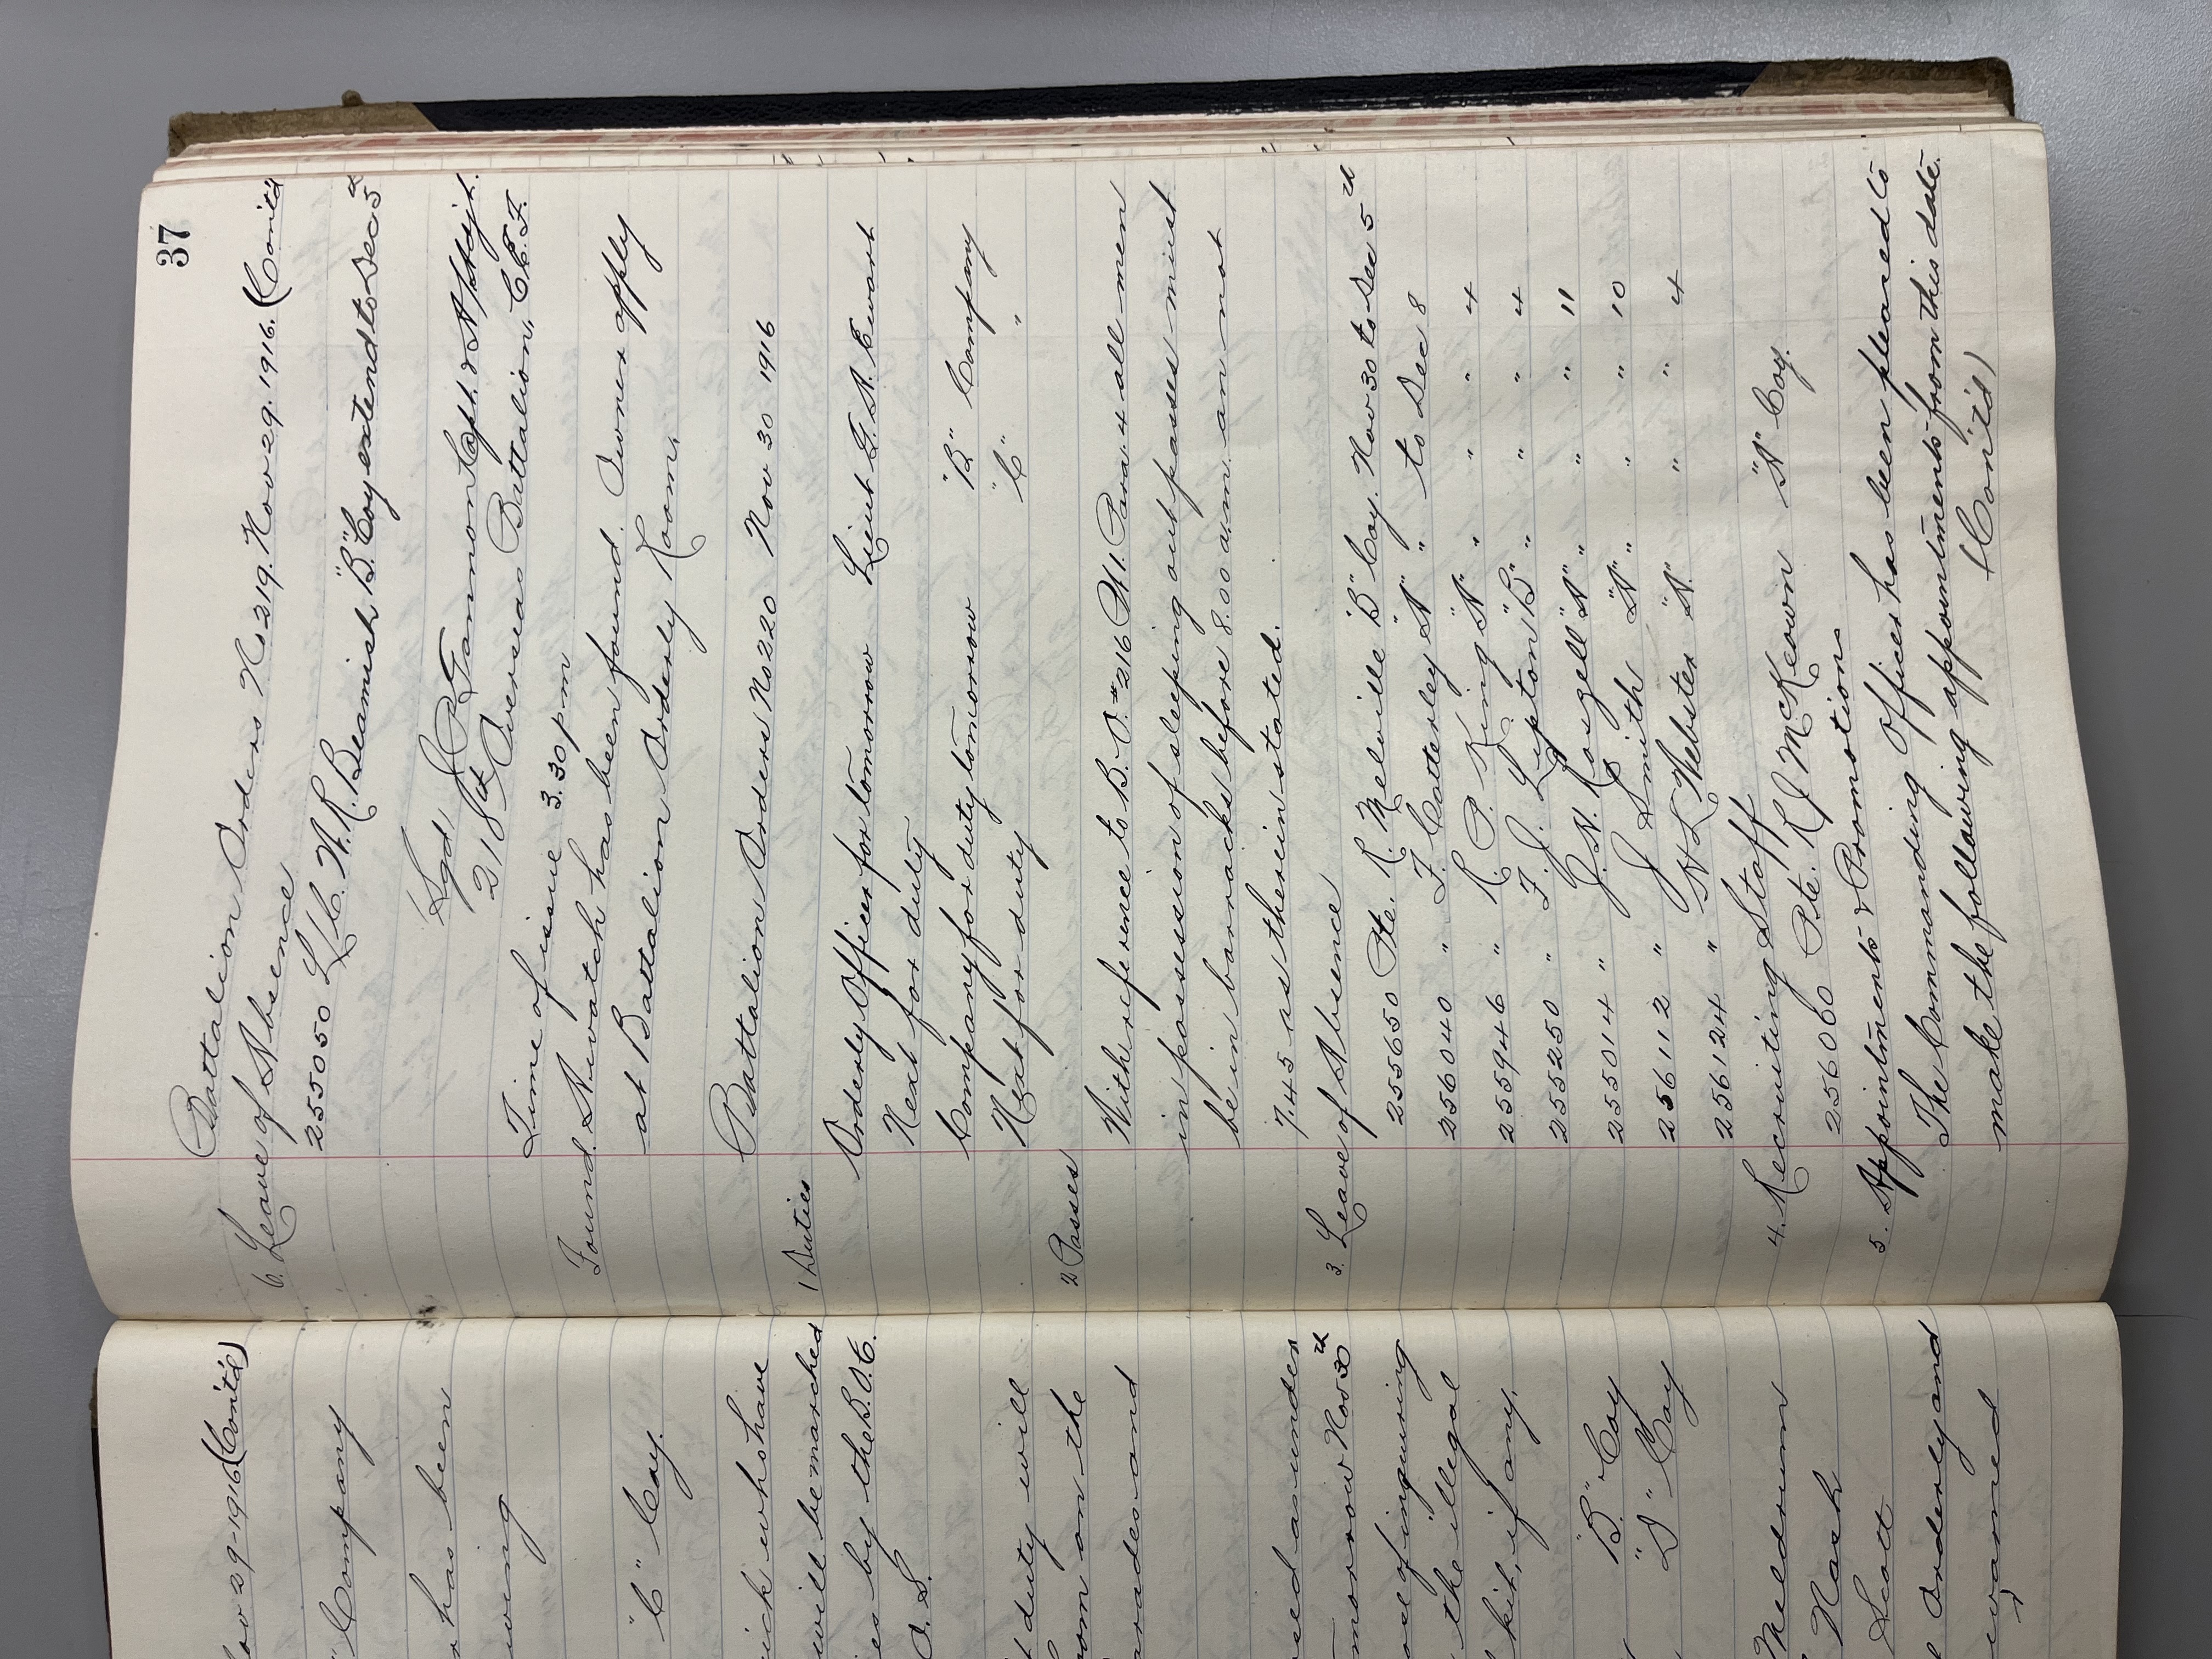 ov 29-1916 (Cont'd)
" Company
r has been
wing
"C" Coy.
ick who have
will be marched
es by the B.O.C.
O.S.
t duty will
oom on the
arades and
eed as under
morrow Nov 30th
ose of inquiring
the illegal
kit, if any,
"B" Coy
"D" Coy
Meldrum
Nash
Scott
Orderly and
warned
37
Battalion Orders No 219. Nov 29. 1916. (Cont'd
6. Leave of Absence
255050 L/C. W. R. Beamish "B" Coy extend to Dec 5th
Sgd, J P Gammon Capt. & A/Adjt.
218th Overseas Battalion, C.E.F.
Time of issue 3.30 p.m
Found. A watch has been found. Owner apply
at Battalion Orderly Room.
Battalion Orders No 220 Nov 30 1916
1 Duties
Orderly Officer for tomorrow Lieut G. A. Ewart
Next for duty
Company for duty tomorrow "B" Company
Next for duty "C" "
2 Passes
With reference to B.O. #216 Pt 1. Para. 4 all men
in possession of sleeping out passes must
be in barracks before 8.00 a.m. an not
7.45 as therein stated.
3. Leave of Absence
255650 Pte. R. Melville "B" Coy. Nov 30 to Dec 5th
256040 " F. Catterley "A" " to Dec 8
255946 " R. P. King "A" " " " 4
255250 " F. J. Lipton "B" " " " 4
255014 " J. A. Rouzell "A" " " " 11
256112 " J Smith "A" " " " 10
256124 " H L Webster "A" " " 4
4. Recruiting Staff
256060 Pte. R J McKeown "A" Coy.
5. Appointments & Promotions
The Commanding Officer has been pleased to
make the following appointments from this date.
(Cont'd)